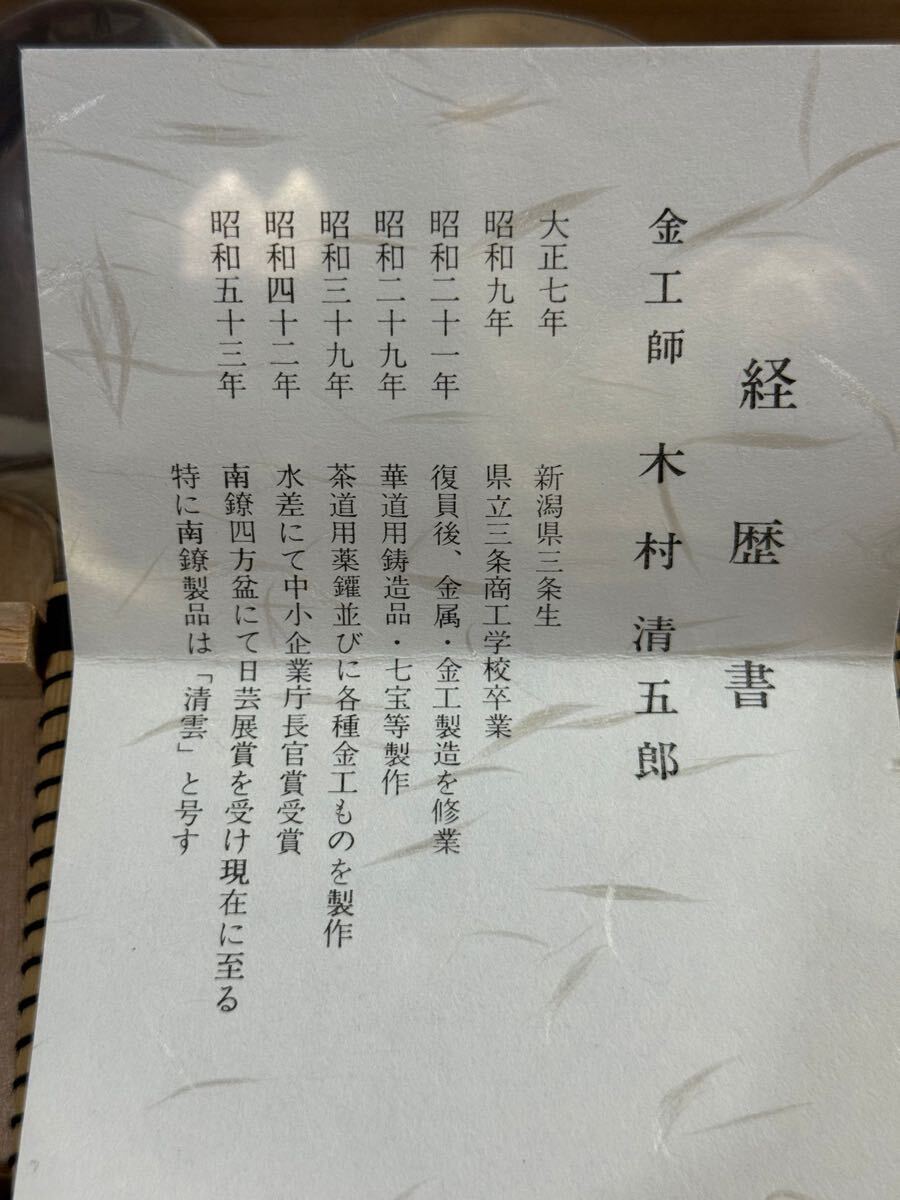 経歴書
金工師 木村清五郎
大正七年 新潟県三条生
昭和九年 県立三条商工学校卒業
昭和二十一年 復員後、金属・金工製造を修業
昭和二十九年 華道用鋳造品・七宝等製作
昭和三十九年 茶道用薬鑵並びに各種金工ものを製作
昭和四十二年 水差にて中小企業庁長官賞受賞
昭和五十三年 南鐐四方盆にて日芸展賞を受け現在に至る
特に南鐐製品は「清雲」と号す